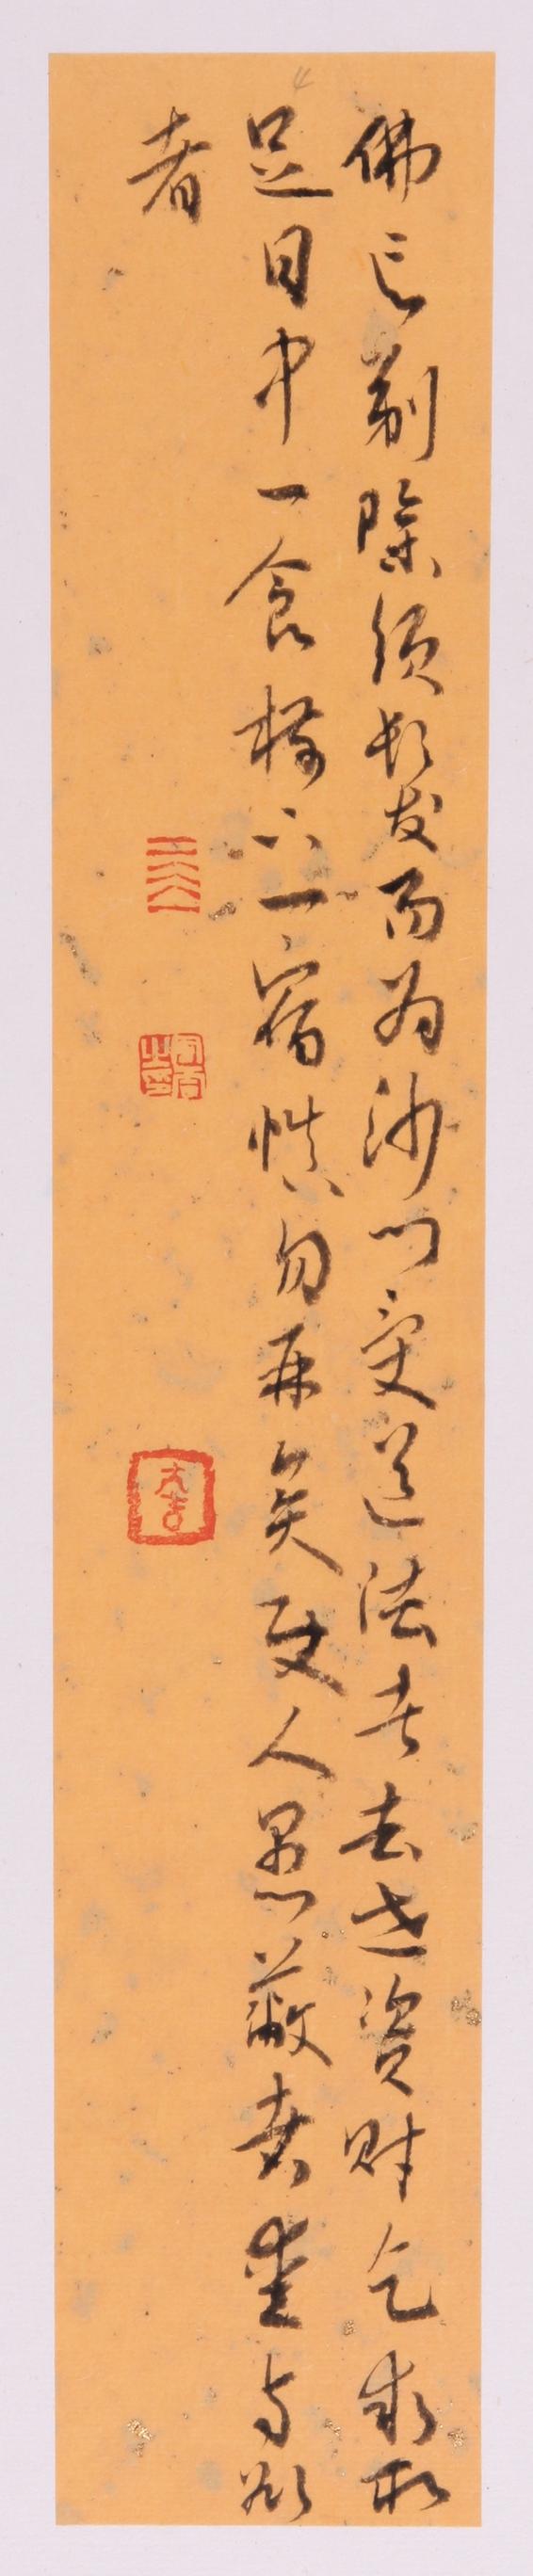 佛言剃除須髮而為沙門受道法者去世資財乞求取
足日中一食樹下一宿慎勿再矣使人愚蔽者愛与欲
者
大吉